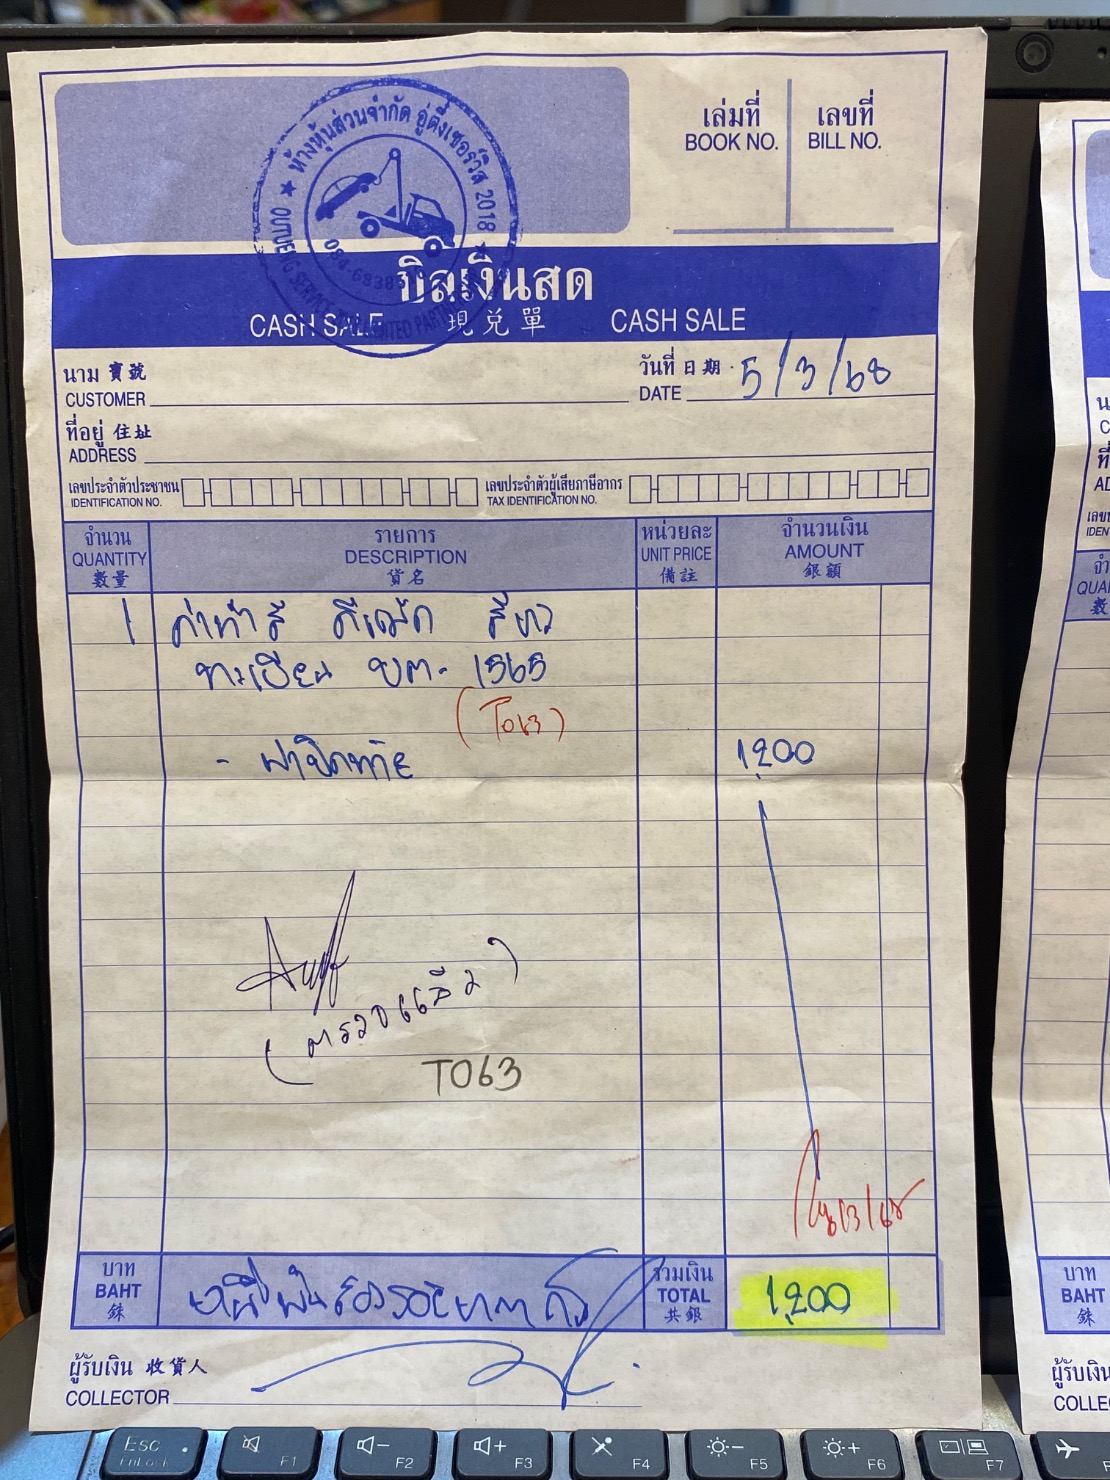 ห้างหุ้นส่วนจำกัด อู่ตึ๋งเซอร์วิส 2018
เล่มที่ เลขที่
BOOK NO. BILL NO.
บิลเงินสด
CASH SALE 現兑單 CASH SALE
นาม 寶號
CUSTOMER
วันที่ 日期 5/3/68
DATE
ที่อยู่ 住址
ADDRESS
เลขประจำตัวประชาชน
IDENTIFICATION NO.
เลขประจำตัวผู้เสียภาษีอากร
TAX IDENTIFICATION NO.
จำนวน รายการ หน่วยละ จำนวนเงิน
QUANTITY DESCRIPTION UNIT PRICE AMOUNT
數量 貨名 備註 銀額
1 ค่าทำสี ดีแม็ก สีขาว
ทะเบียน บต. 1565
(T063)
- ฝาปิดท้าย 1,200
(ตรวจแล้ว)
T063
บาท
BAHT
銖
หนึ่งพันสองร้อยบาทถ้วน
รวมเงิน
TOTAL
共銀
1,200
ผู้รับเงิน 收貨人
COLLECTOR
Esc
FnLock
F1 F2 F3 F4 F5 F6 F7